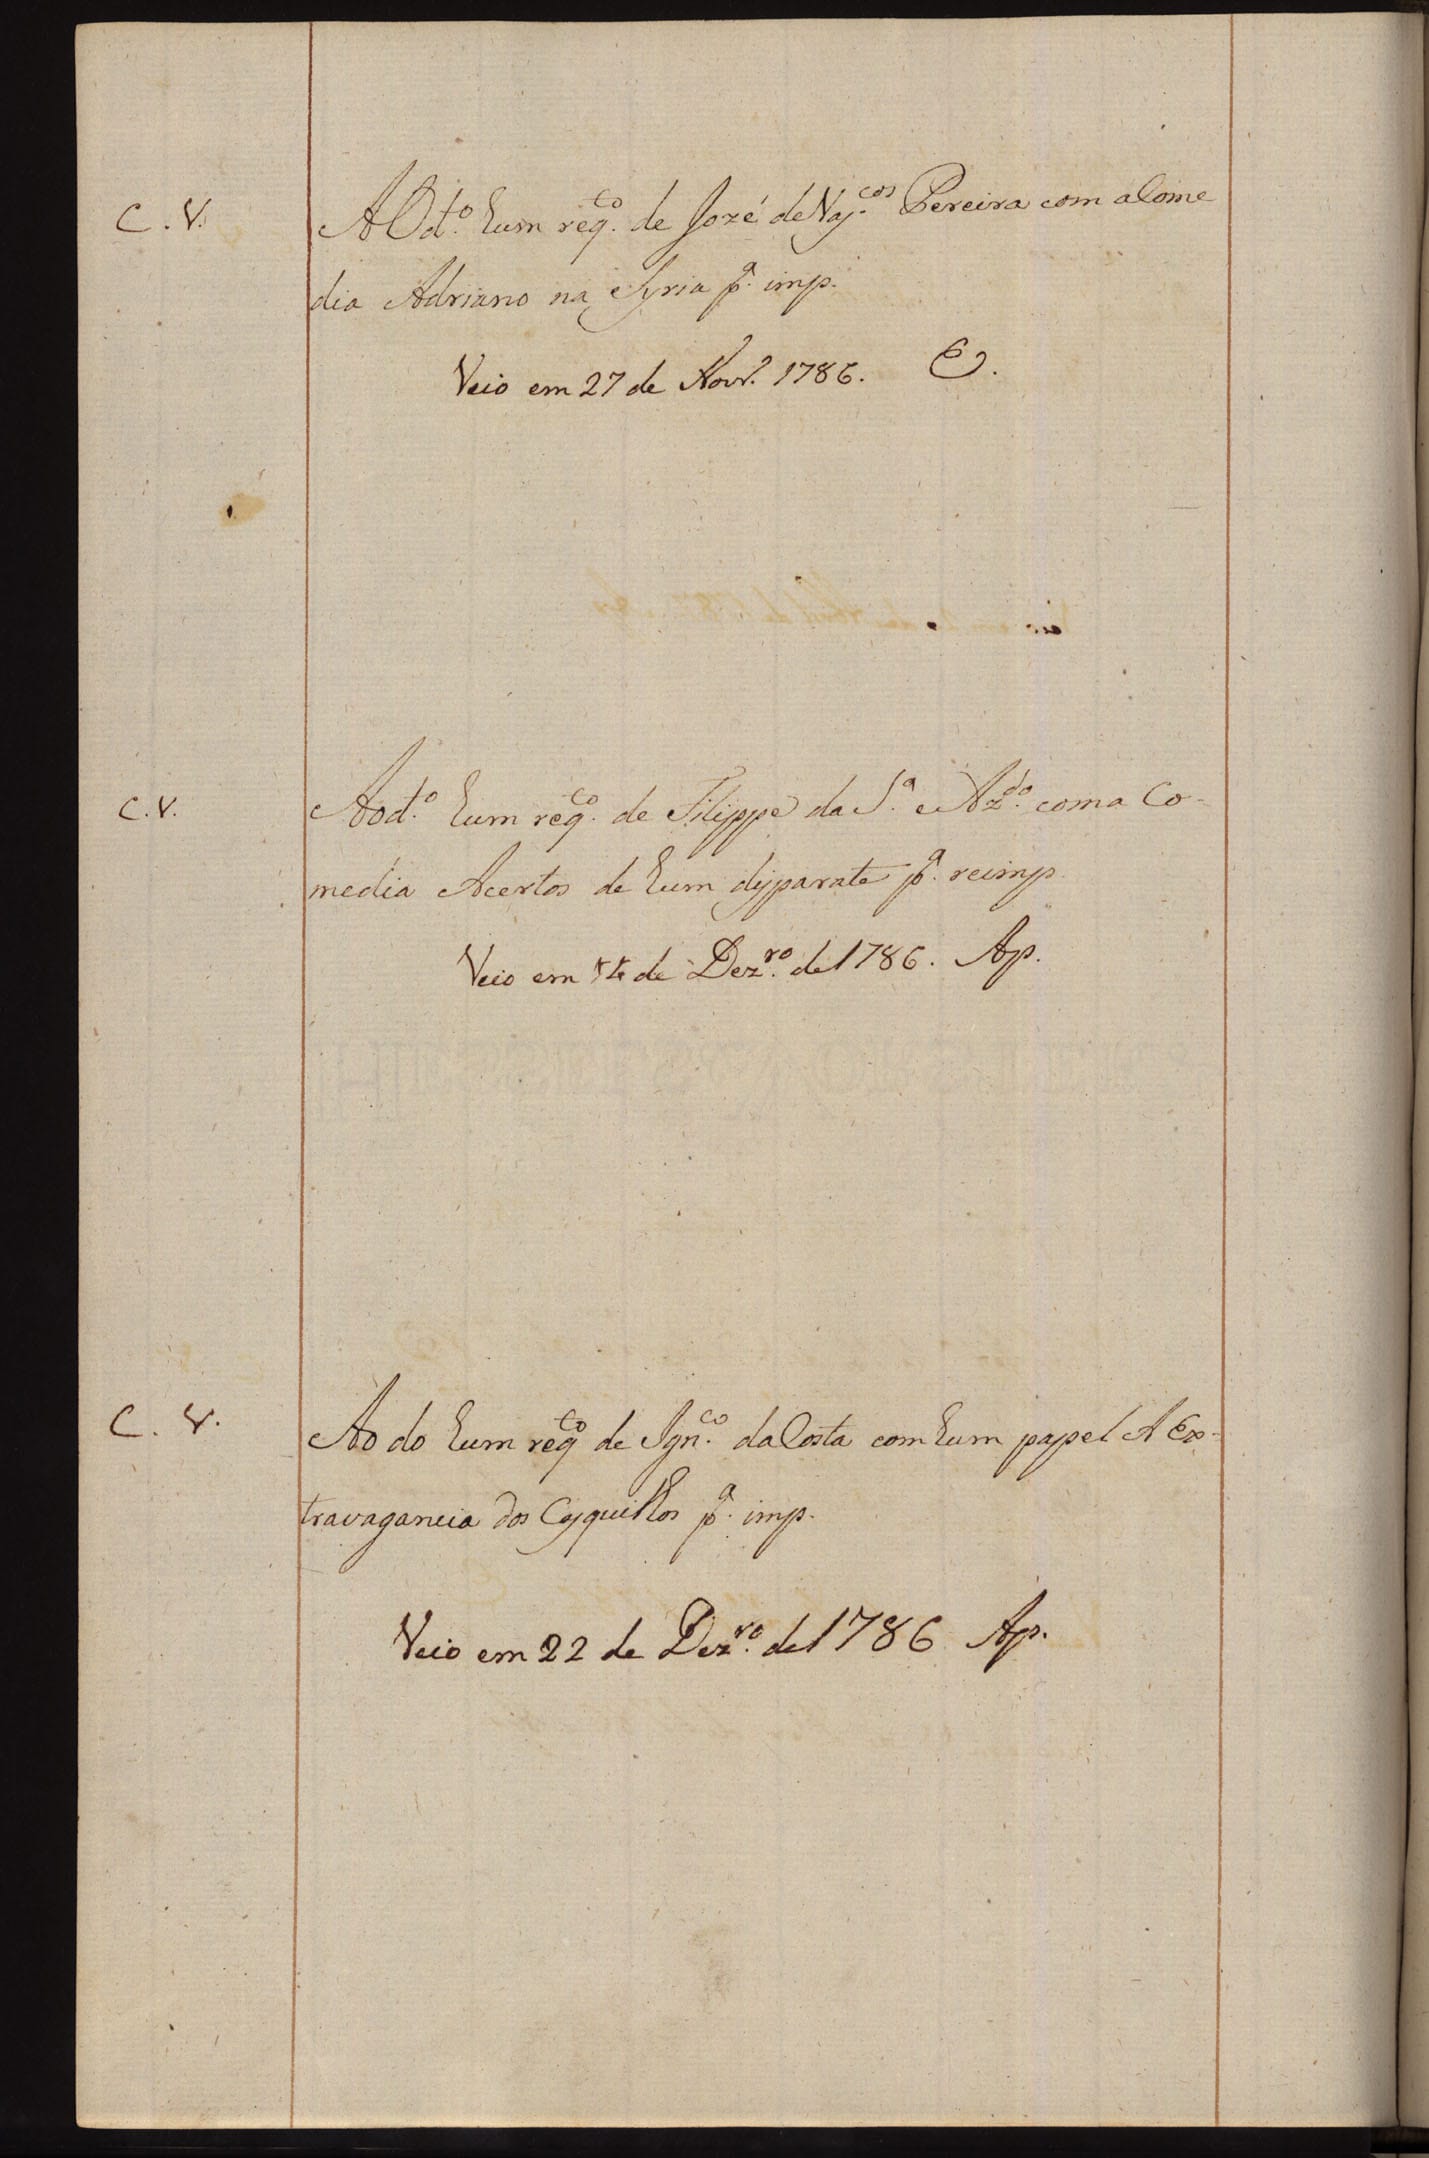 C. V.
AO d.to hum req.to de Jozé de Vas.cos Pereira com a Come
dia Adriano na Syria p.a imp.
Veio em 27 de Novr.o 1786. E.
C. V.
Ao d.to hum req.to de Filippe da S.a e Az.do com a Co-
media Acertos de hum disparate p.a reimp.
Veio em de Dez.ro de 1786. Ap.
C. V.
Ao do hum req.to de Ign.co da Costa com hum papel A Ex-
travagancia dos Casquilhos p.a imp.
Veio em 22 de Dez.ro de 1786 Ap.